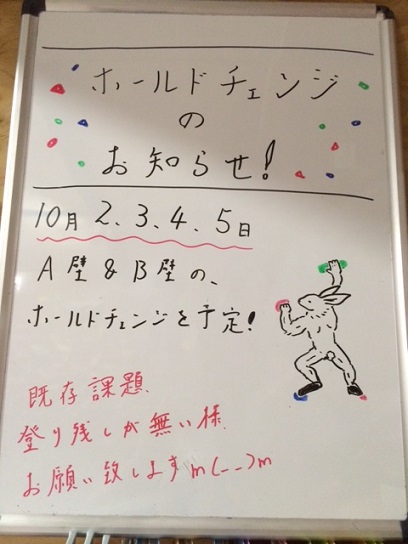 ホールドチェンジ
の
お知らせ!
10月 2、3、4、5日
A壁&B壁の、
ホールドチェンジを予定!
既存課題、
登り残しが無い様、
お願い致しますm(--)m